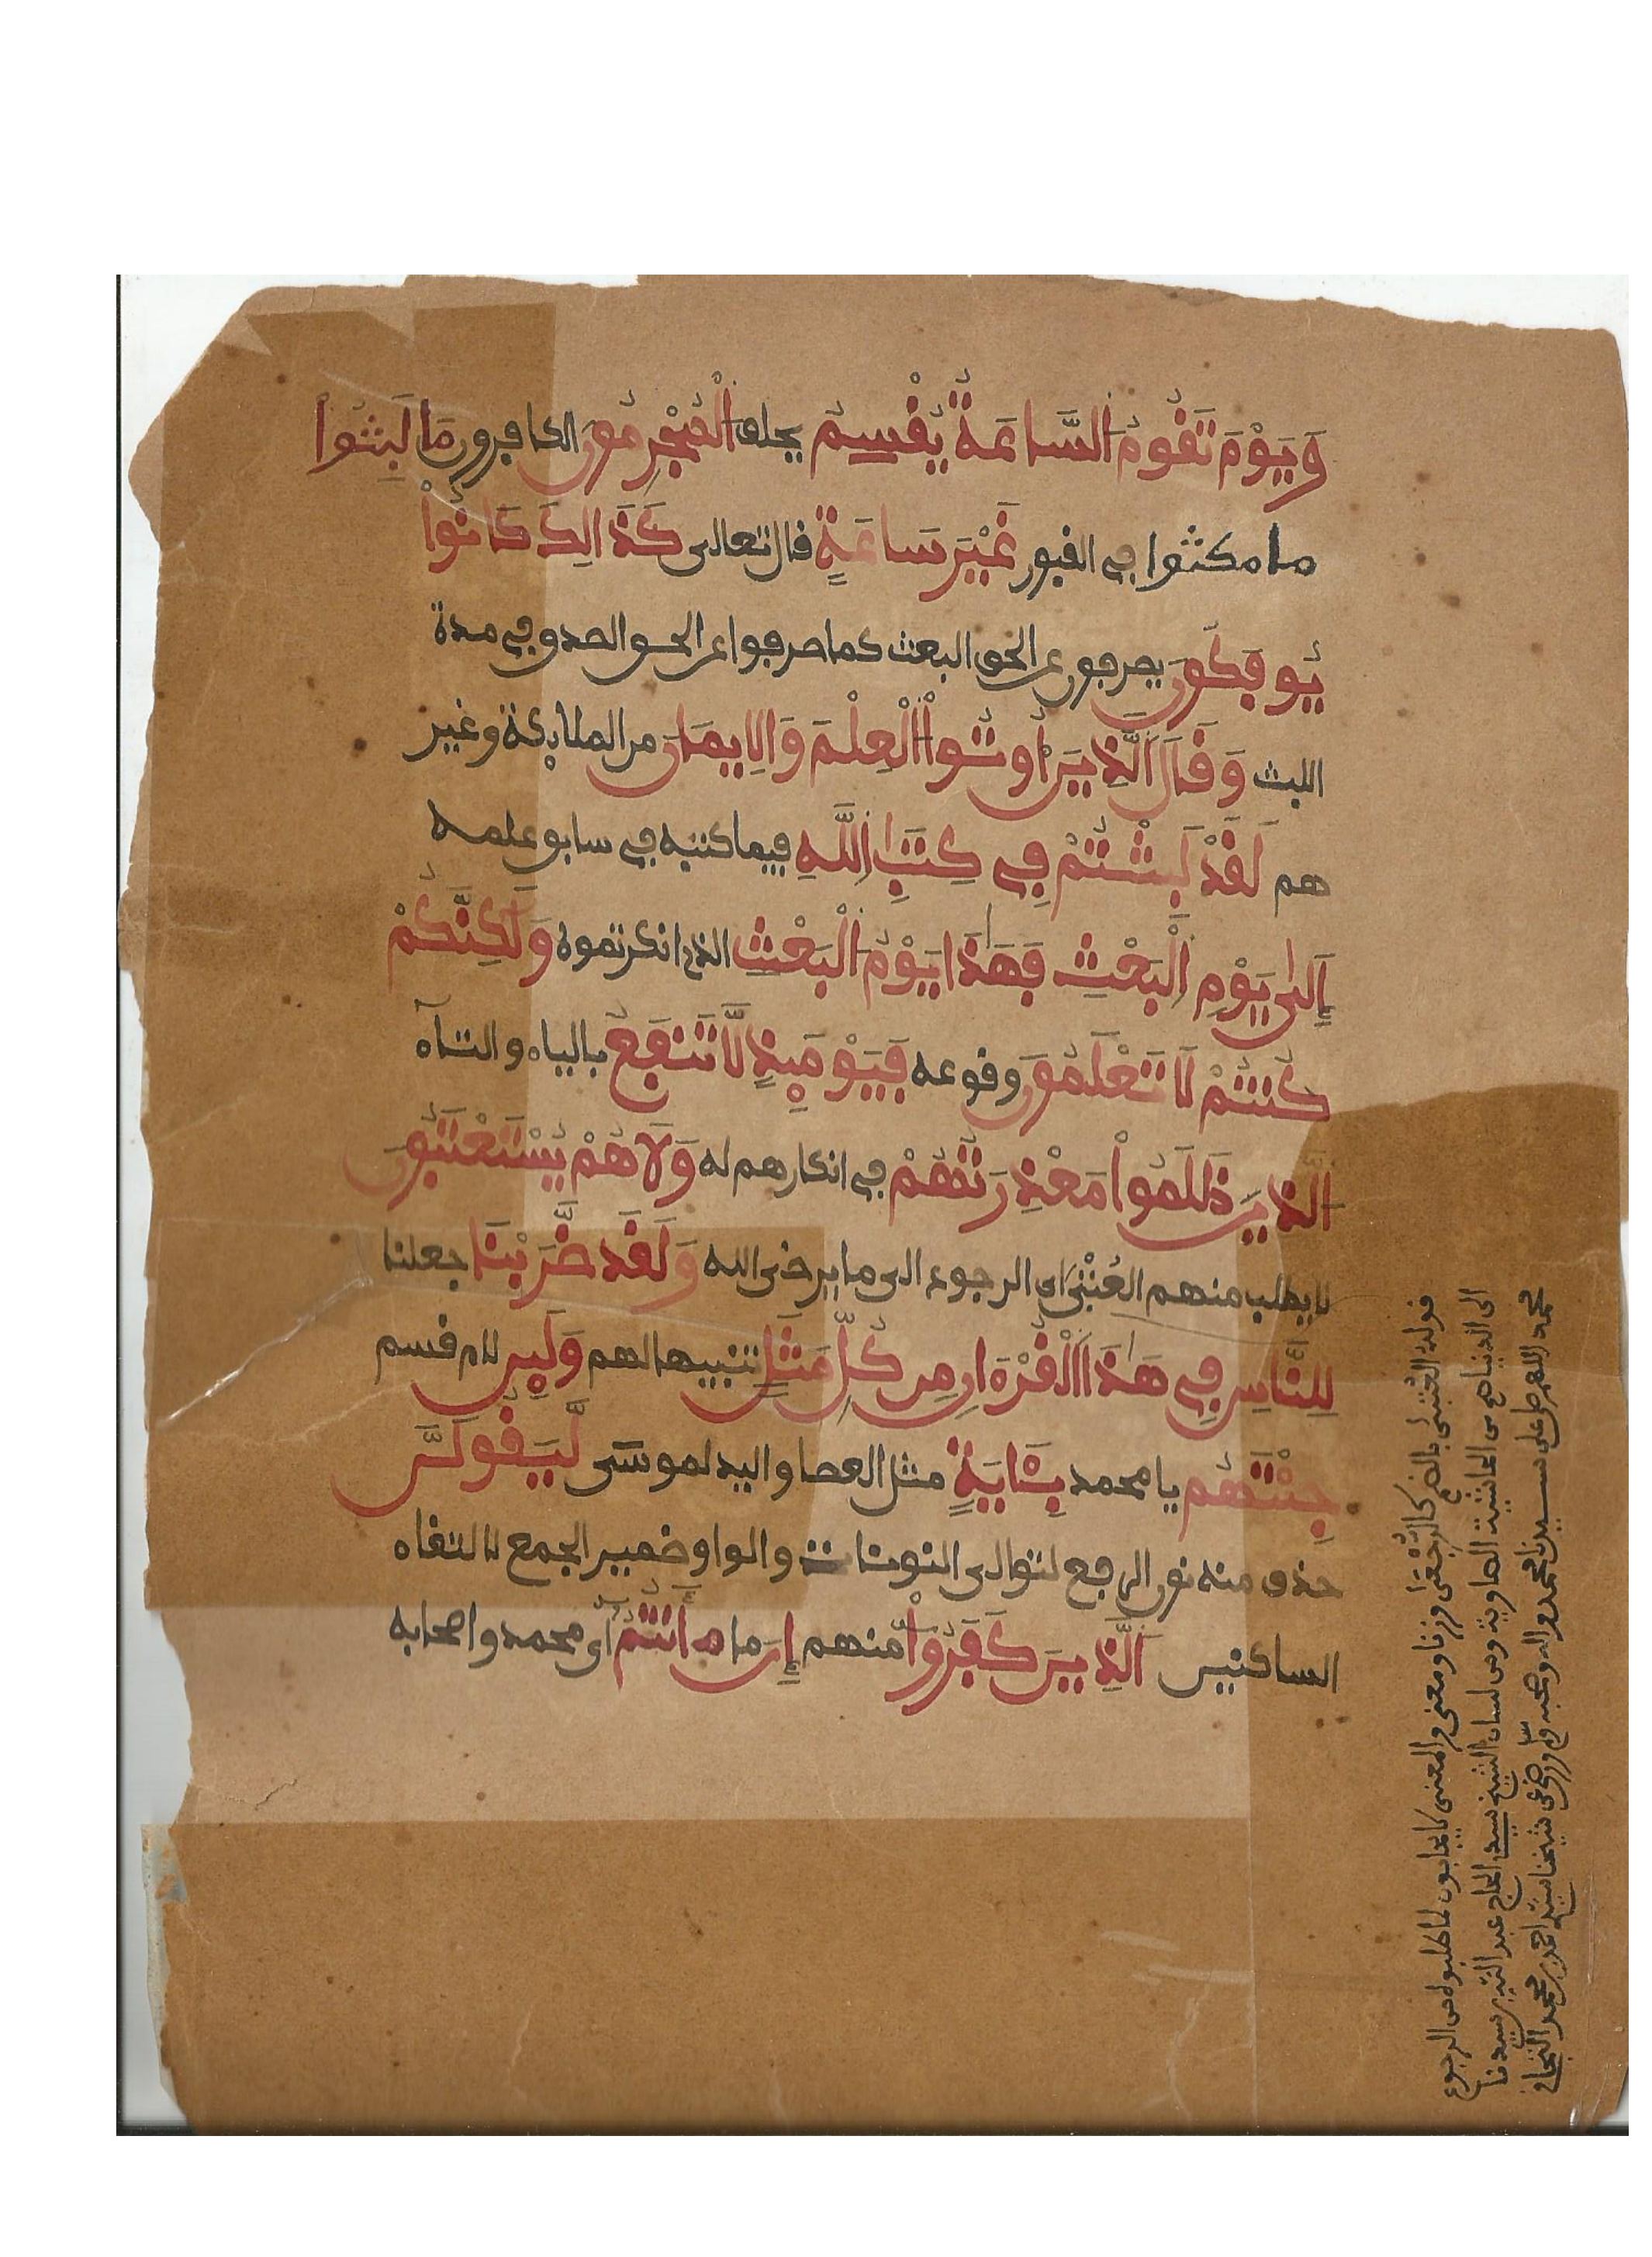 وَيَوْمَ تَقُومُ السَّاعَةُ يُقْسِمُ يحلف الْمُجْرِمُونَ الكافرون مَا لَبِثُواْ
ما مكثوا في القبور غَيْرَ سَاعَةٍ قال تعالى كَذَالِكَ كَانُواْ
يُوفَكُونَ يصرفون عن الحق البعث كما صرفوا عن الحق الصدق في مدة
اللبث وَقَالَ الَّذِينَ أُوتُواْ الْعِلْمَ وَالِايمَانَ من الملائكة وغير
هم لَقَدْ لَبِثْتُمْ فِي كِتَابِ اللَّهِ فيما كتبه في سابق علمه
إِلَى يَوْمِ الْبَعْثِ فَهَذَا يَوْمُ الْبَعْثِ الذي انكرتموه وَلَكِنَّكُمْ
كُنتُمْ لَا تَعْلَمُونَ وقوعه فَيَوْمَئِذٍ لَّا تَنفَعُ بالياء والتاء
الذِينَ ظَلَمُواْ مَعْذِرَتُهُمْ في انكارهم له وَلَا هُمْ يُسْتَعْتَبُونَ
لا يطلب منهم العُتْبَى اي الرجوع الى ما يرضي الله وَلَقَد ضَّرَبْنَا جعلنا
لِلنَّاسِ فِي هَذَا الْقُرْءَانِ مِن كُلِّ مَثَلٍ تنبيها لهم وَلَئِن لام قسم
جِئْتَهُم يا محمد بِئَايَةٍ مثل العصا واليد لموسى لَيَقُولَنَّ
حذف منه نون الرفع لتوالي النونات والواو ضمير الجمع لالتقاء
الساكنين الَّذِينَ كَفَرُواْ منهم إِنَ ما اَنتُمُ اي محمد واصحابه
قوله العتبى بالضم كالرجعى وزنا ومعنى والمعنى لا يجابون لما طلبوه من الرجوع
الى الدنيا هـ من الحاشية الصاوية ومن لسان الشيخ سيد الحاج عبد الله سيدنا
محمد اللهم صل على سيدنا محمد واله وصحبه وسلم ورضي عن شيخنا سيد احمد بن محمد التجاني